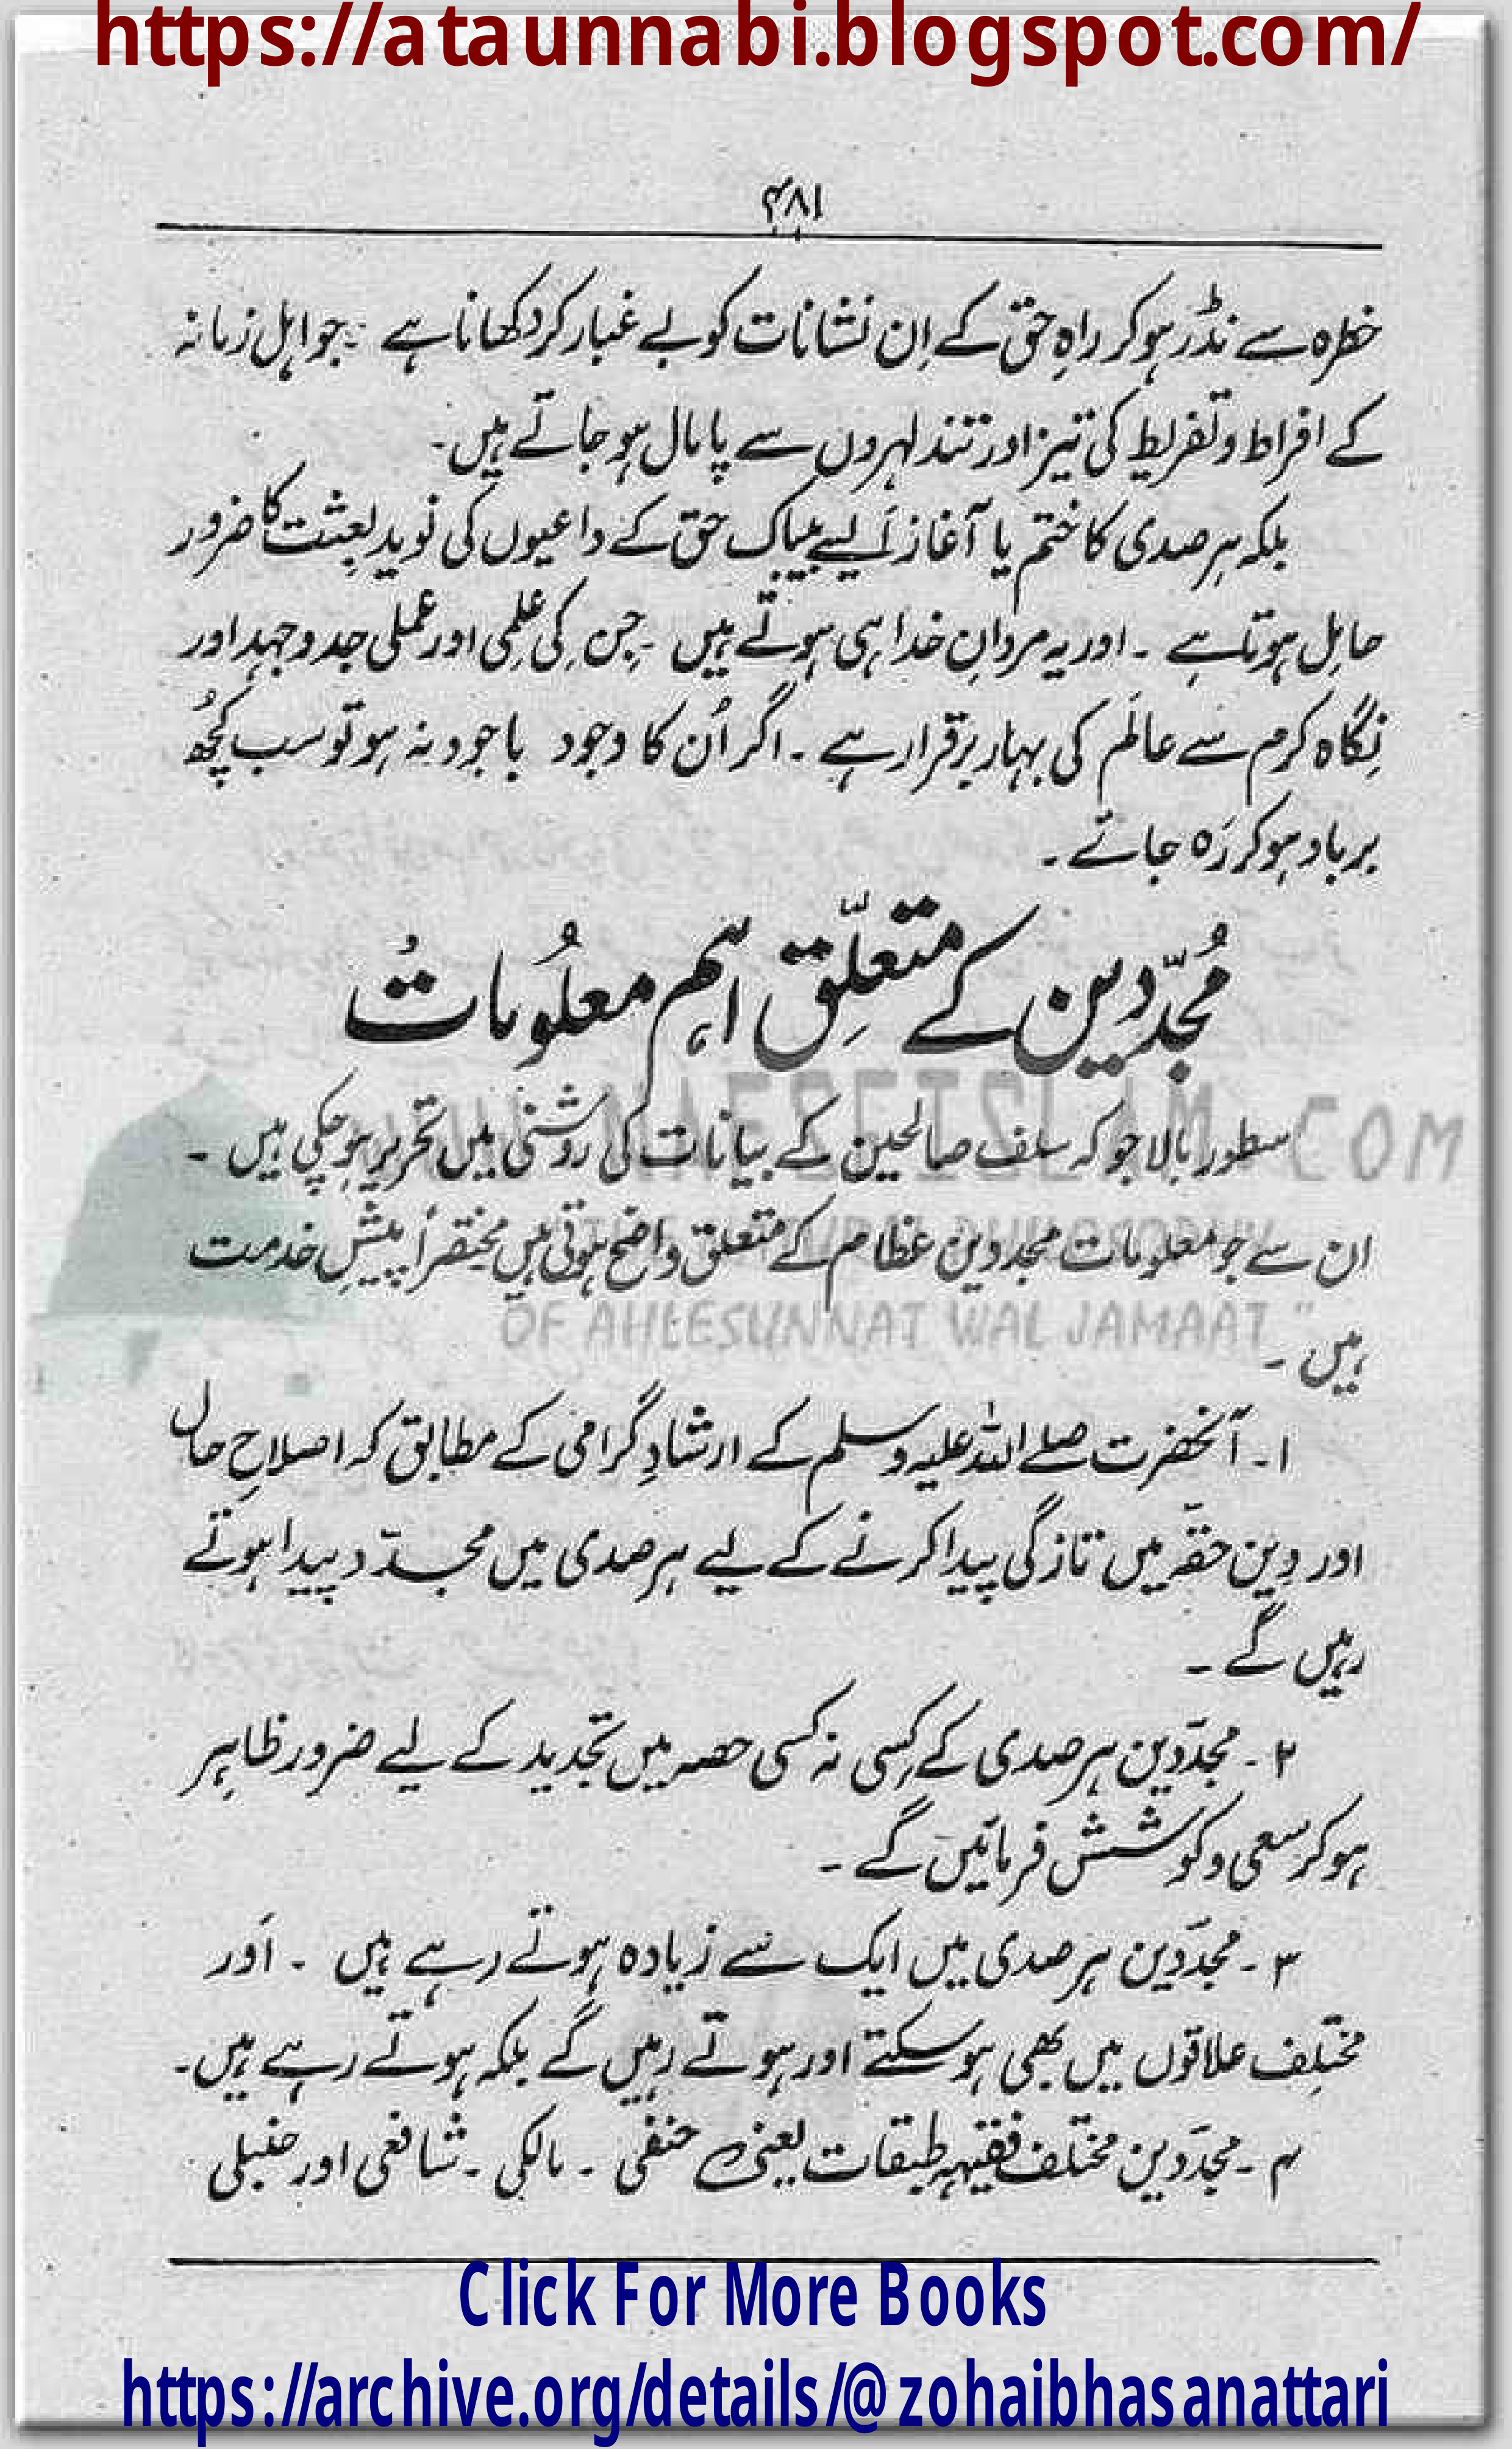 https://ataunnabi.blogspot.com/
۴۸۱
خطرہ سے نڈر ہوکر راہِ حق کے اِن نشانات کو بے غبار کر دکھانا ہے ۔ جو اہل زمانہ
کے افراط و تفریط کی تیز اور تند لہروں سے پامال ہو جاتے ہیں۔
بلکہ ہر صدی کا ختم یا آغاز اَیسے بیباک حق کے داعیوں کی نویدِ بعثت کا ضرور
حامِل ہوتا ہے ۔ اور یہ مردانِ خدا ہی ہوتے ہیں ۔ جِن کی عِلمی اور عملی جدوجہد اور
نِگاہ کرم سے عالَم کی بہار برقرار ہے ۔ اگر اُن کا وجود باجود نہ ہو تو سب کچُھ
برباد ہوکر رَہ جائے ۔
مُجدّدِین کے متعلّق اہم معلُومات
سطور بالا جو کہ سلف صالحین کے بیانات کی روشنی میں تحریر ہوچکی ہیں ۔
ان سے جو معلومات مجددین عظام کے متعلق واضح ہوتی ہیں مختصراً پیشِ خدمت
ہیں ۔
۱ ۔ آنحضرت صلے اللہ علیہ وسلم کے ارشادِ گرامی کے مطابق کہ اصلاحِ حال
اور دِین حقہ میں تازگی پیدا کرنے کے لیے ہر صدی میں مجدّد پیدا ہوتے
رہیں گے ۔
۲ ۔ مجدّدین ہر صدی کے کِسی نہ کسی حصہ میں تجدید کے لیے ضرور ظاہر
ہوکر سعی و کوشش فرمائیں گے ۔
۳ ۔ مجدّدین ہر صدی میں ایک سے زیادہ ہوتے رہے ہیں ۔ اَور
مختلِف علاقوں میں بھی ہو سکتے اور ہوتے رہیں گے بلکہ ہوتے رہے ہیں۔
۴ ۔ مجدّدین مختلف فقیہہ طبقات یعنی حنفی ۔ مالکی ۔ شافعی اور حنبلی
OF AHLESUNNAT WAL JAMAAT"
Click For More Books
https://archive.org/details/@zohaibhasanattari